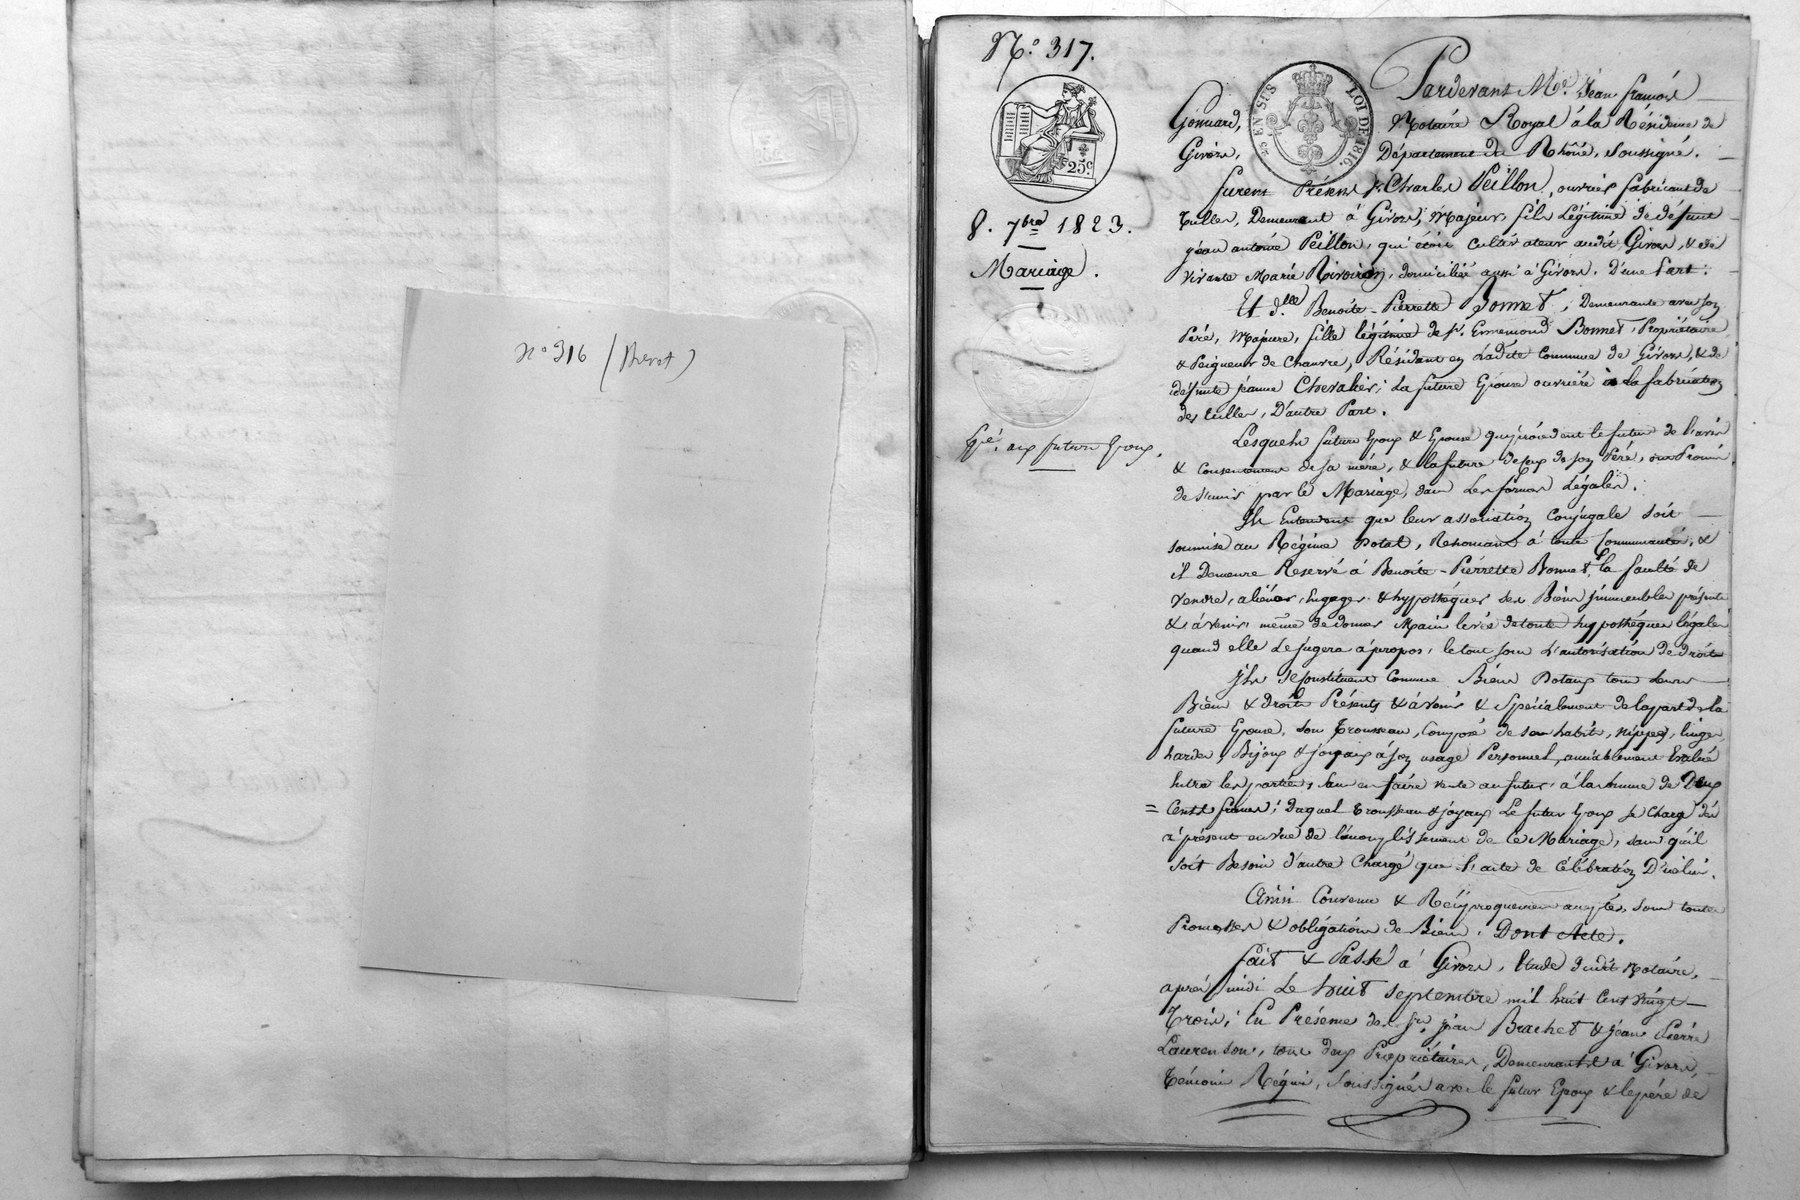 n° 316 (Brevet)
N.° 317.
25c.
EN SUS
LOI DE 1816.
8. 7bre 1823.
Mariage.
Exp.é aux futurs Epoux.
Pardevant M.e Jean françois
Gonnard, Notaire Royal à la Résidence de
Givors, Département du Rhône, soussigné.
furent Présens Sr. Charles Peillon, ouvrier fabricant de
tuiles, Demeurant à Givors, Majeur, fils Légitime de defunt
jean antoine Peillon, qui étoit cultivateur audit Givors, & de
vivante Marie Rivoiron, domiciliée aussi à Givors. D'une Part.
Et d.lle Benoite-Pierrette Bonnet, Demeurante avec son
Père, Majeure, fille légitime de sr. Ennemond Bonnet, Propriétaire
& Peigneur de Chanvre, Résidant en Ladite Commune de Givors, & de
défunte jeanne Chevalier; La future Epouse ouvrière à la fabrication
des tuiles, D'autre Part.
Lesquels futurs Epoux & Epouse procédent le futur de l'avis
& consentement de sa mère, & la future de ceux de son Père, ont Promis
de s'unir par le Mariage, dans les formes Légales.
Ils Entendent que leur association Conjugale soit
soumise au Régime Dotal, Renonçant à toute Communauté, &
il Demeure Reservé à Benoite-Pierrette Bonnet, la faculté de
vendre, aliéner, Engager & hypothéquer ses Biens immeubles présents
& à venir, même de donner Main levée de toute hypothéque légale
quand elle le jugera à propos, le tout sous L'autorisation de droit
ils se Constituent Comme Biens Dotaux tous Leurs
Biens & droits Présents & à venir & Spécialement de la part de la
future Epouse, son Trousseau, Composé de ses habits, nippes, linges
hardes, Bijoux & joyaux à son usage Personnel, amiablement Evalué
Entre les parties, sans en faire vente au futur, à la somme de Deux
= Cents francs; Duquel trousseau & joyaux Le futur Epoux se Charge dès
à présent en vue de l'accomplissement de Ce Mariage, sans qu'il
soit Besoin d'autre Charge que l'acte de Célébration D'icelui.
Ainsi Convenu & Réciproquement accepté, sous toutes
Promesses & obligations de Biens. Dont Acte.
fait & Passé à Givors, Etude dudit Notaire,
après midi Le huit septembre mil huit Cent vingt
Trois; En Présence de Srs. jean Brachet & jean Pierre
Laurenson, tous deux Propriétaires, Demeurants à Givors,
Témoins Réquis, Soussignés avec le futur Epoux & le père de